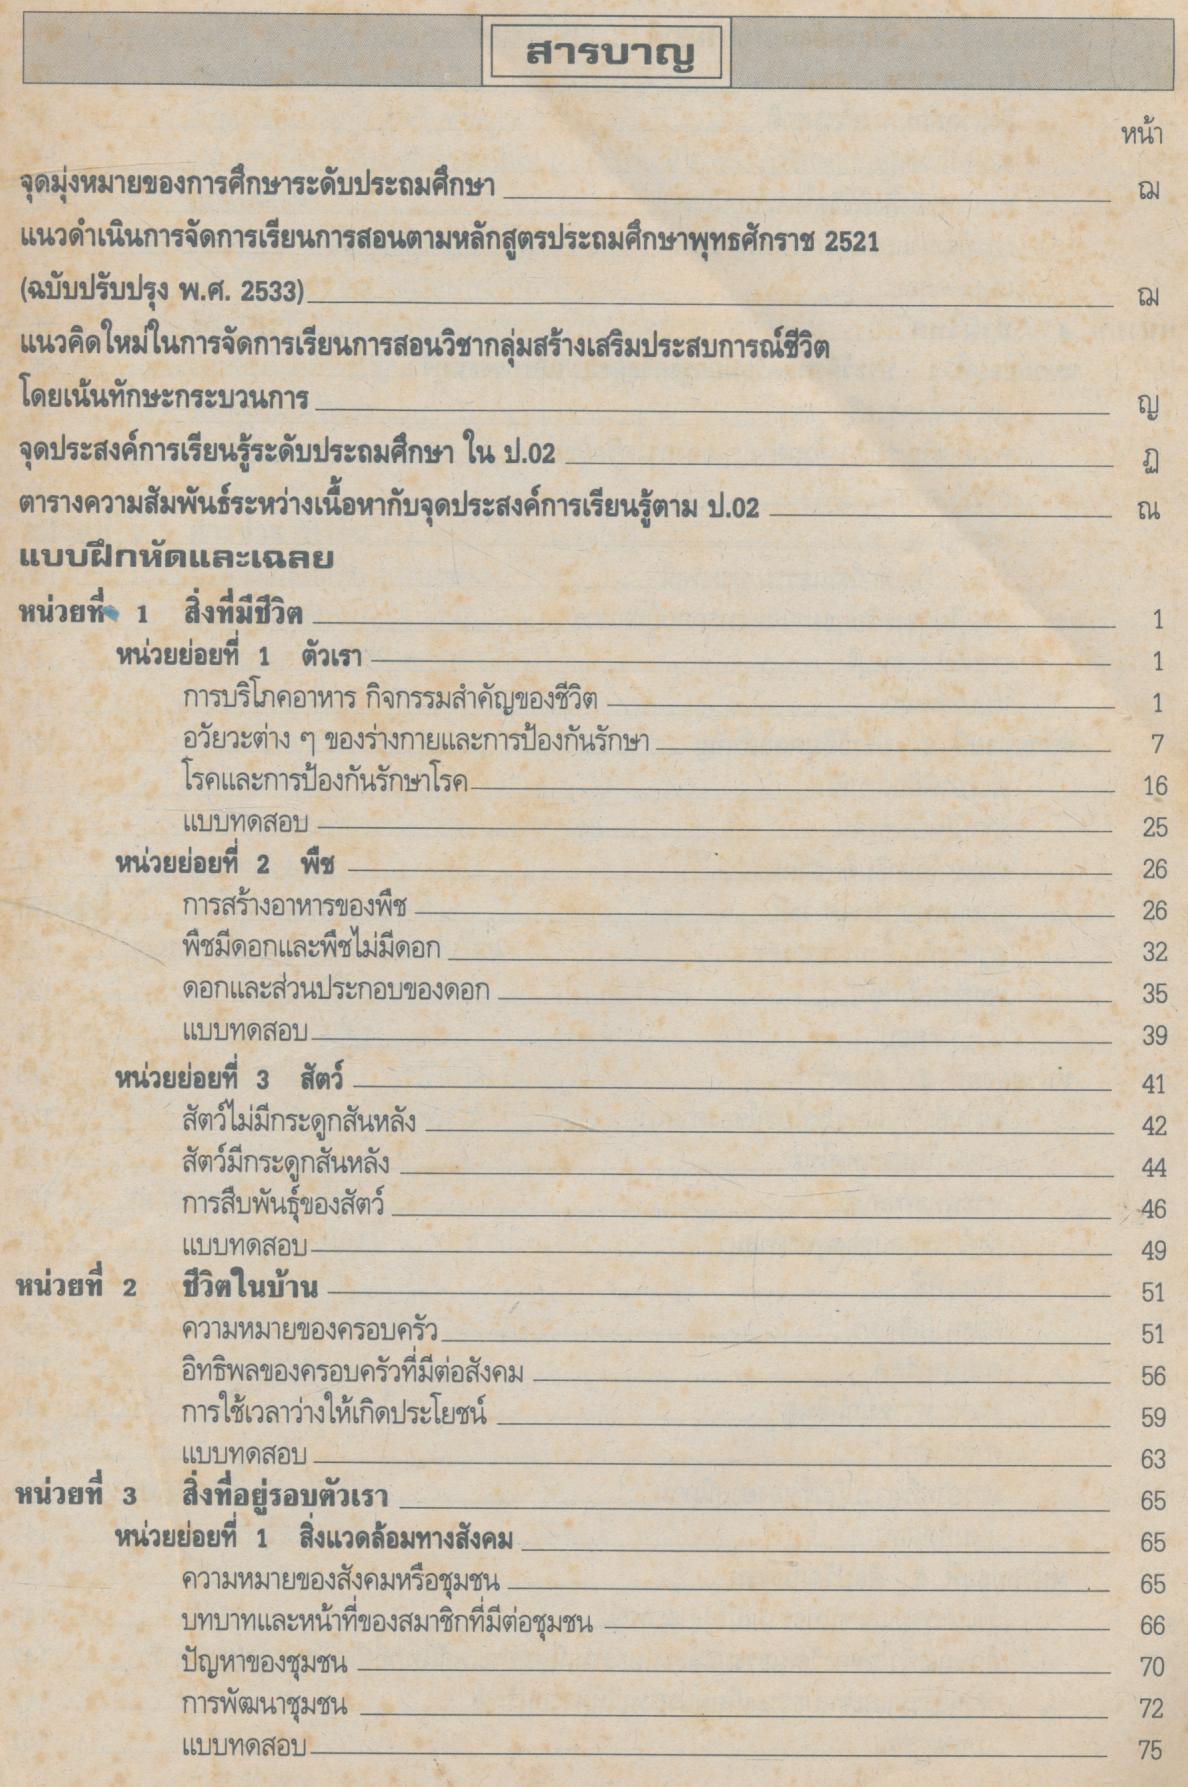 สารบาญ
หน้า
จุดมุ่งหมายของการศึกษาระดับประถมศึกษา ฌ
แนวดำเนินการจัดการเรียนการสอนตามหลักสูตรประถมศึกษาพุทธศักราช 2521
(ฉบับปรับปรุง พ.ศ. 2533) ฌ
แนวคิดใหม่ในการจัดการเรียนการสอนวิชากลุ่มสร้างเสริมประสบการณ์ชีวิต
โดยเน้นทักษะกระบวนการ ญ
จุดประสงค์การเรียนรู้ระดับประถมศึกษา ใน ป.02 ฏ
ตารางความสัมพันธ์ระหว่างเนื้อหากับจุดประสงค์การเรียนรู้ตาม ป.02 ณ
แบบฝึกหัดและเฉลย
หน่วยที่ 1 สิ่งที่มีชีวิต 1
หน่วยย่อยที่ 1 ตัวเรา 1
การบริโภคอาหาร กิจกรรมสำคัญของชีวิต 1
อวัยวะต่าง ๆ ของร่างกายและการป้องกันรักษา 7
โรคและการป้องกันรักษาโรค 16
แบบทดสอบ 25
หน่วยย่อยที่ 2 พืช 26
การสร้างอาหารของพืช 26
พืชมีดอกและพืชไม่มีดอก 32
ดอกและส่วนประกอบของดอก 35
แบบทดสอบ 39
หน่วยย่อยที่ 3 สัตว์ 41
สัตว์ไม่มีกระดูกสันหลัง 42
สัตว์มีกระดูกสันหลัง 44
การสืบพันธุ์ของสัตว์ 46
แบบทดสอบ 49
หน่วยที่ 2 ชีวิตในบ้าน 51
ความหมายของครอบครัว 51
อิทธิพลของครอบครัวที่มีต่อสังคม 56
การใช้เวลาว่างให้เกิดประโยชน์ 59
แบบทดสอบ 63
หน่วยที่ 3 สิ่งที่อยู่รอบตัวเรา 65
หน่วยย่อยที่ 1 สิ่งแวดล้อมทางสังคม 65
ความหมายของสังคมหรือชุมชน 65
บทบาทและหน้าที่ของสมาชิกที่มีต่อชุมชน 66
ปัญหาของชุมชน 70
การพัฒนาชุมชน 72
แบบทดสอบ 75